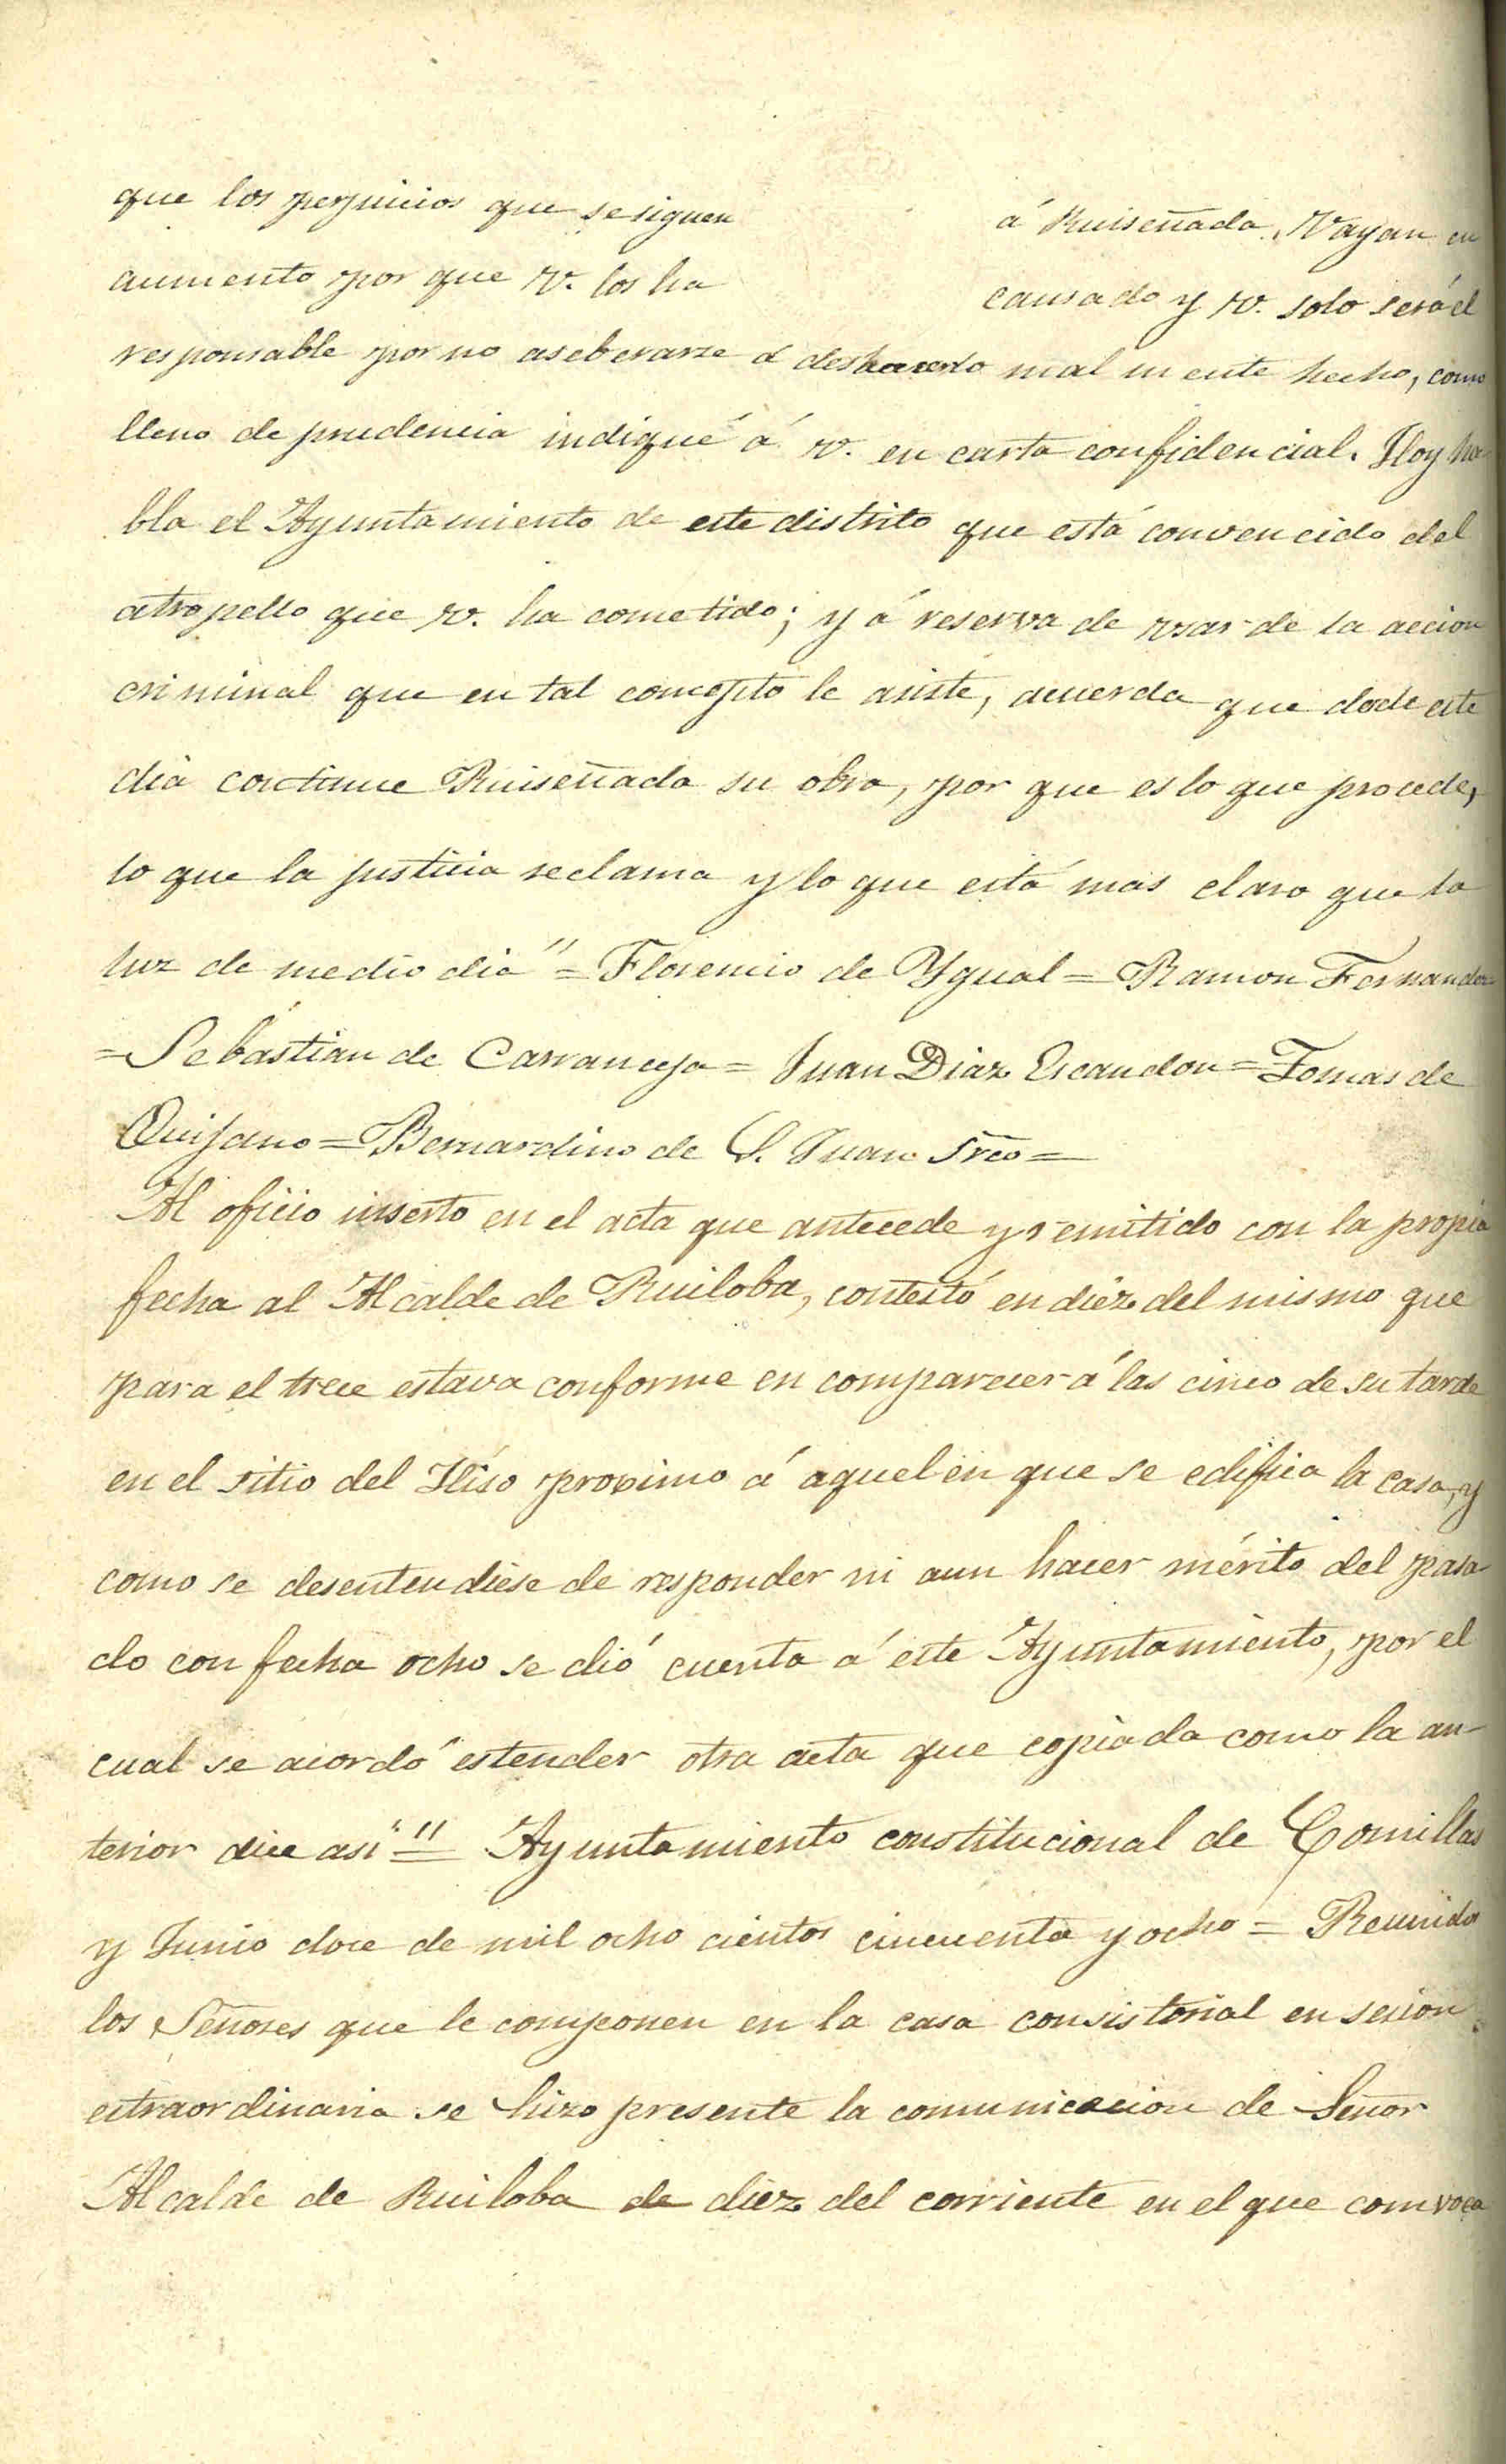 que los perjuicios que se siguen á Ruiseñada, Vayan en
aumento por que V. los ha causado y V. solo será el
responsable por no aseberarse á deshacerlo mal mente hecho, como
lleno de prudencia indiqué á V. en carta confidencial. Hoy ha
bla el Ayuntamiento de este distrito que está convencido del
atropello que V. ha cometido; y á reserva de usar de la accion
criminal que en tal concepto le asiste, acuerda que desde este
dia continue Ruiseñada su obra, por que es lo que procede,
lo que la justicia reclama y lo que está mas claro que la
luz de medio dia" = Florencio de Ygual = Ramon Fernandez
= Sebastian de Carranceja = Juan Diaz Escandon = Tomas de
Quijano = Bernardino de S. Juan Srio =
Al oficio inserto en el acta que antecede y remitido con la propia
fecha al Alcalde de Ruiloba, contestó en diez del mismo que
para el trece estava conforme en comparecer á las cinco de su tarde
en el sitio del Hiso proximo á aquel en que se edifica la casa, y
como se desentendiese de responder ni aun hacer mérito del pasa
do con fecha ocho se dió cuenta á este Ayuntamiento, por el
cual se acordó estender otra acta que copiada como la an-
terior dice asi " = Ayuntamiento constitucional de Comillas
y Junio doce de mil ocho cientos cincuenta y ocho = Reunidos
los Señores que le componen en la casa consistorial en sesion
estraordinaria se hizo presente la comunicacion de Señor
Alcalde de Ruiloba de diez del corriente en el que comvoca